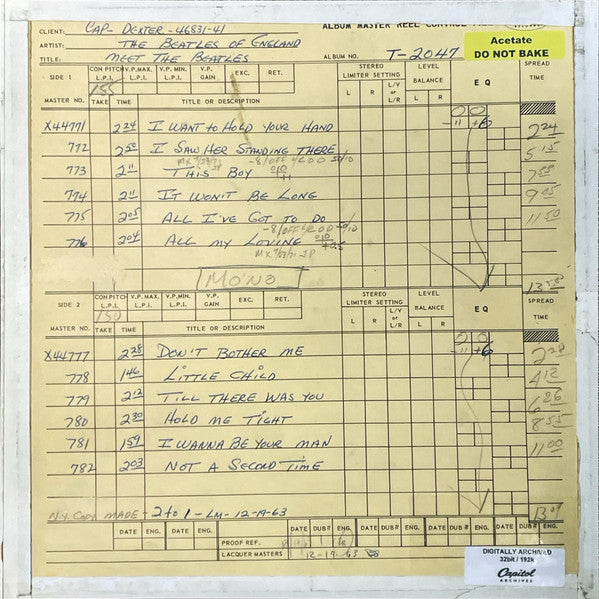 ALBUM MASTER REEL CONTROL
CLIENT: CAP- DEXTER -46831-41
ARTIST: THE BEATLES OF ENGLAND
TITLE: MEET THE BEATLES ALBUM NO. T-2047
Acetate
DO NOT BAKE
SIDE 1 CON PITCH L.P.I. V.P.MAX. L.P.I. V.P.MIN. L.P.I. V.P. GAIN EXC. RET. STEREO LIMITER SETTING LEVEL BALANCE EQ SPREAD TIME
155 L R L/V or L/R L R
MASTER NO. TAKE TIME TITLE OR DESCRIPTION
-11 +6
X44771 2 24 I WANT TO HOLD YOUR HAND 2 24
772 2 50 I SAW HER STANDING THERE 5 15
773 2 11 THIS BOY
774 2 11 IT WON'T BE LONG
775 2 05 ALL I'VE GOT TO DO 11 50
776 2 04 ALL MY LOVING
MONO
SIDE 2 CON PITCH L.P.I. V.P.MAX. L.P.I. V.P.MIN. L.P.I. V.P. GAIN EXC. RET. STEREO LIMITER SETTING LEVEL BALANCE EQ SPREAD TIME
150 L R L/V or L/R L R
MASTER NO. TAKE TIME TITLE OR DESCRIPTION
-11 +6
X44777 2 28 DON'T BOTHER ME 2 28
778 1 46 LITTLE CHILD 4 12
779 2 12 TILL THERE WAS YOU 6 26
780 2 30 HOLD ME TIGHT 8 55
781 1 59 I WANNA BE YOUR MAN 11 00
782 2 03 NOT A SECOND TIME
N.Y. COPY MADE - 2 to 1 - LM - 12-19-63 13 07
DATE ENG. DATE ENG. DATE ENG. DATE DUB# ENG. DATE DUB# ENG. DATE DUB# ENG.
PROOF REF.
LACQUER MASTERS 12-19-63
DIGITALLY ARCHIVED
32bit / 192k
Capitol
ARCHIVES